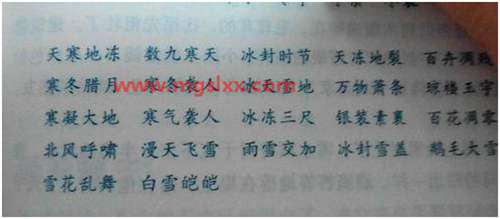 天寒地冻 数九寒天 冰封时节 天冻地裂 百卉凋残
寒冬腊月 寒冬袭人 冰天雪地 万物萧条 琼楼玉宇
www.mgslxx.com
寒凝大地 寒气袭人 冰冻三尺 银装素裹 百花凋零
北风呼啸 漫天飞雪 雨雪交加 冰封雪盖 鹅毛大雪
雪花乱舞 白雪皑皑